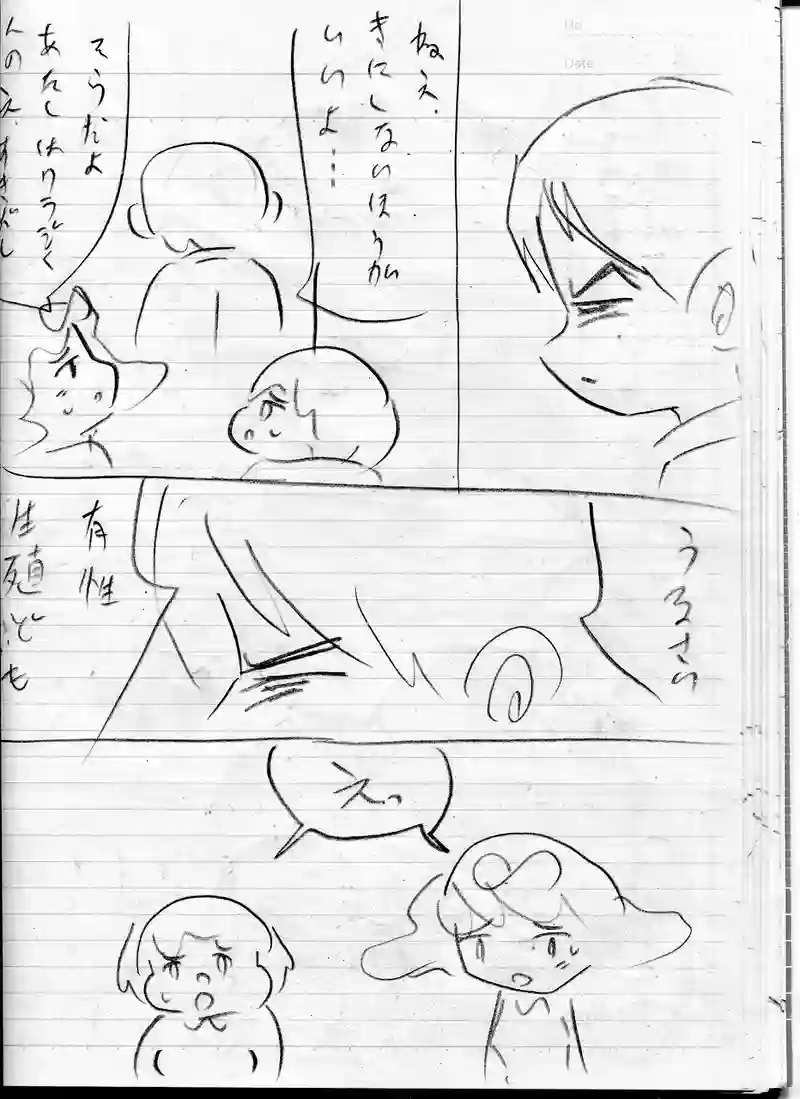 No.
Date
ねえ、
きにしないほうが
いいよ…
そうだよ
あたしはワラジく
んのえ、すきだし
うるさい
有性
生殖ども
えっ